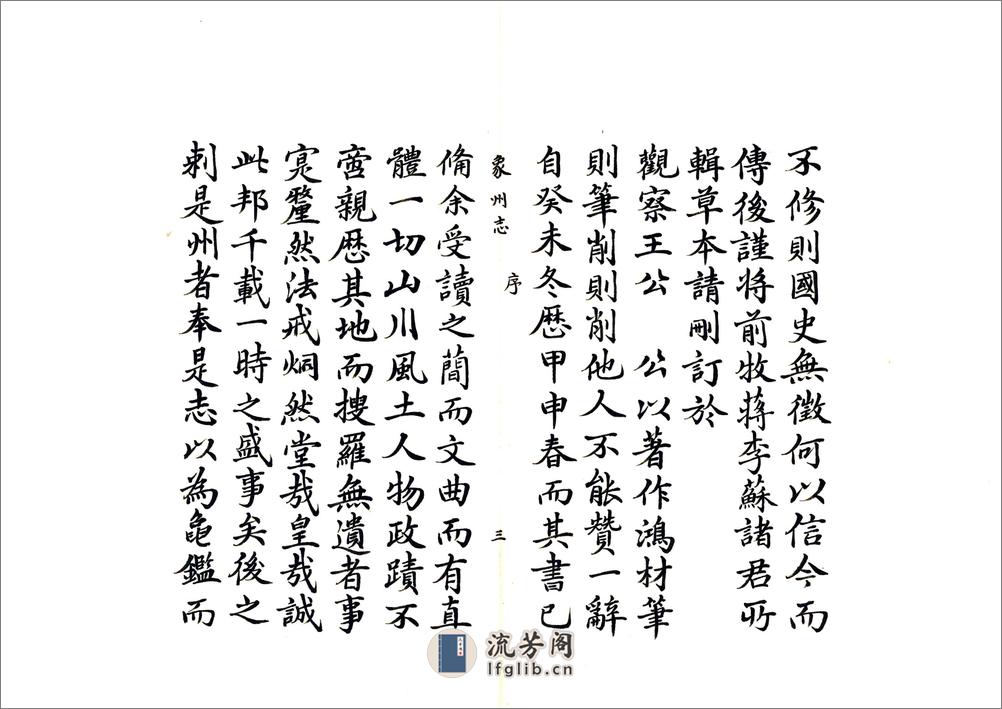 不修則國史無徵何以信今而
傳後謹将前牧蒋李蘇諸君所
輯草本請刪訂於
觀察王公 公以著作鴻材筆
則筆削則削他人不能贊一辭
自癸未冬歷甲申春而其書已
象州志 序 三
俻余受讀之蕳而文曲而有直
體一切山川風土人物政蹟不
啻親歷其地而搜羅無遺者事
寔釐然法戒炯然堂哉皇哉誠
此邦千載一時之盛事矣後之
刺是州者奉是志以為龜鑑而
流芳阁
lfglib.cn